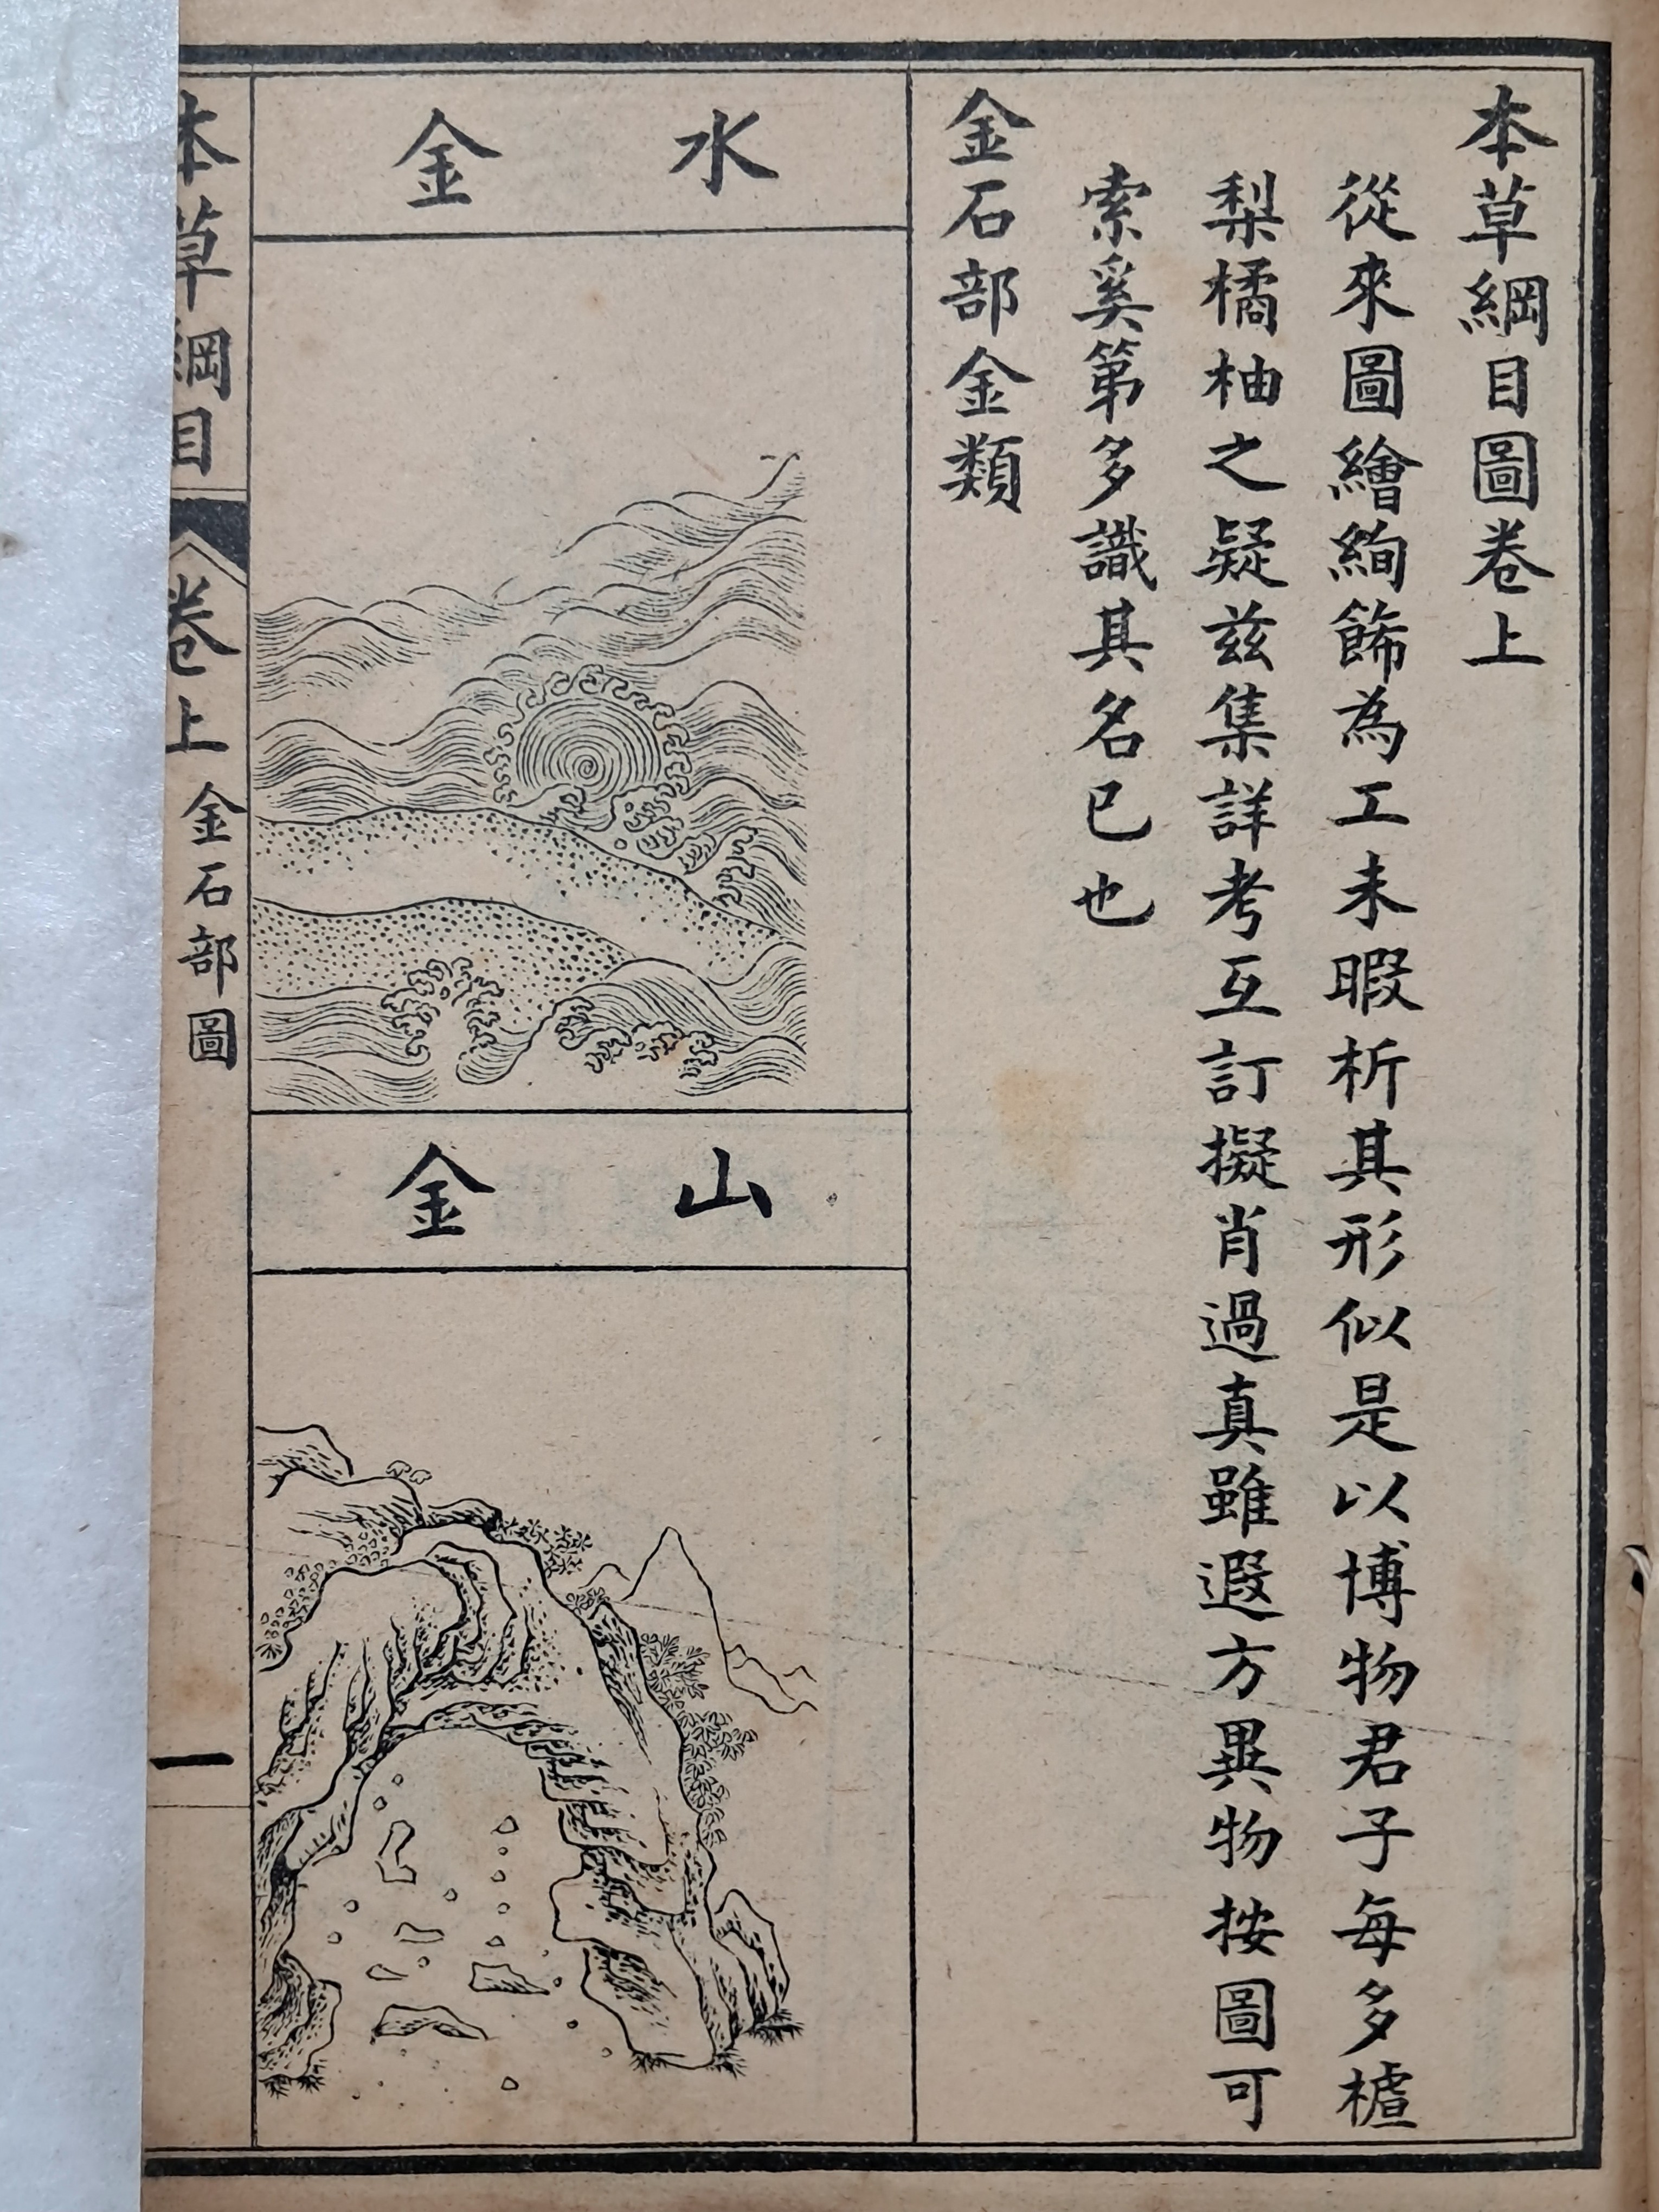 本草綱目圖卷上
從來圖繪絢飾為工未暇析其形似是以博物君子每多樝
梨橘柚之疑兹集詳考互訂擬肖過真雖遐方異物按圖可
索奚第多識其名已也
金石部金類
水金
山金
本草綱目 卷上 金石部圖 一